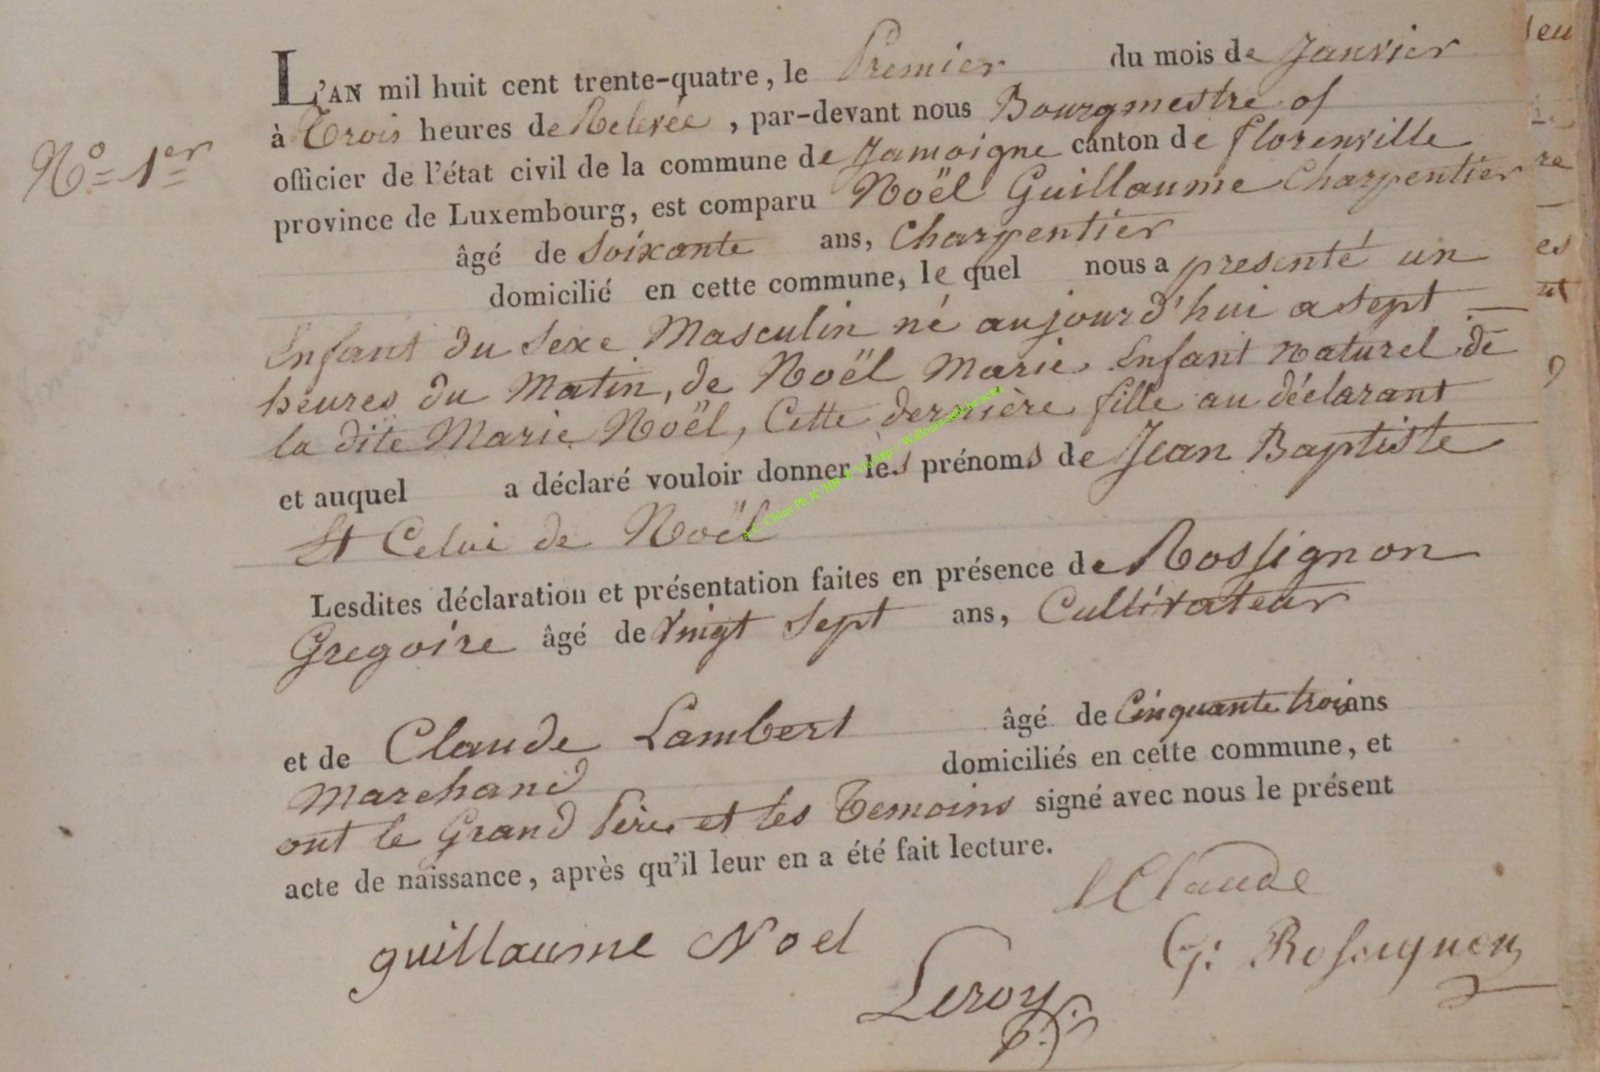 L'AN mil huit cent trente-quatre, le Premier du mois de Janvier
à Trois heures de Relevée, par-devant nous Bourgmestre of
N.° 1er
officier de l'état civil de la commune de Jamoigne canton de florenville
province de Luxembourg, est comparu Noël Guillaume Charpentier
âgé de Soixante ans, Charpentier
domicilié en cette commune, le quel nous a presenté un
Enfant du Sexe Masculin né aujourd'hui a sept
heures du Matin, de Noël Marie Enfant Naturel de
la dite Marie Noël, Cette dernière fille au déclarant
et auquel a déclaré vouloir donner les prénoms de Jean Baptiste
Et Celui de Noël
Lesdites déclaration et présentation faites en présence de Rossignon
Gregoire âgé de Vingt Sept ans, Cultivateur
et de Claude Lambert âgé de Cinquante trois ans
Marchand domiciliés en cette commune, et
ont le Grand Père et les Temoins signé avec nous le présent
acte de naissance, après qu'il leur en a été fait lecture.
lClaude
guillaume Noel
G: Rossignon
Leroy